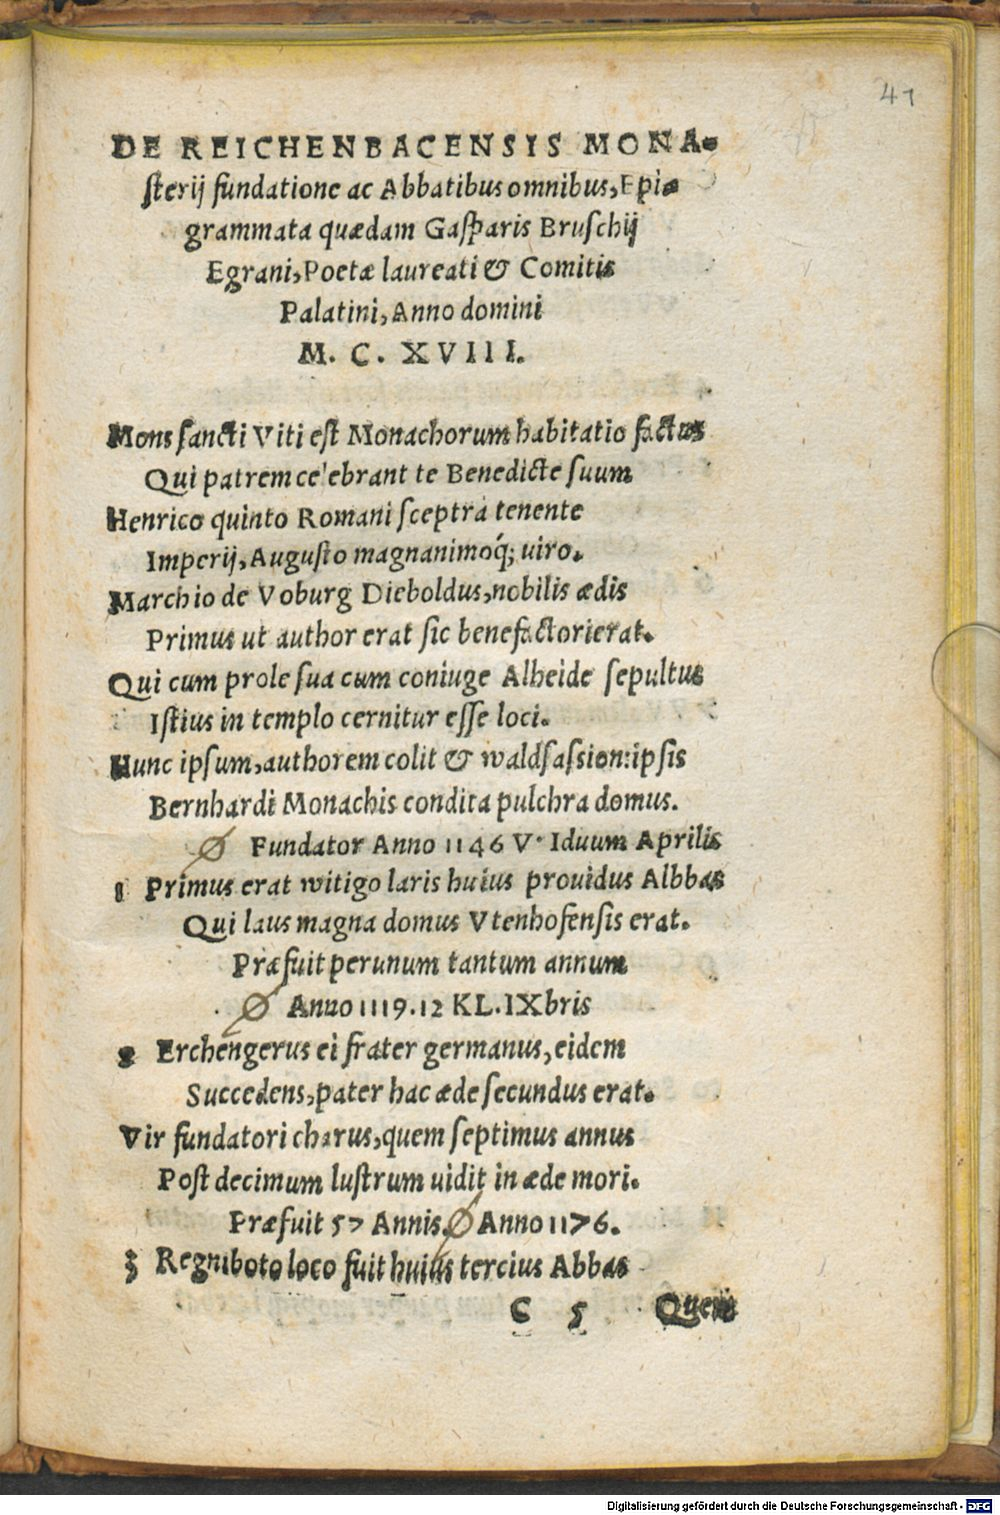 41
DE REICHENBACENSIS MONA-
sterij fundatione ac Abbatibus omnibus, Epi-
grammata quædam Gasparis Bruschij
Egrani, Poetæ laureati & Comitis
Palatini, Anno domini
M. C. XVIII.
Mons sancti Viti est Monachorum habitatio factus
Qui patrem ce'ebrant te Benedicte suum
Henrico quinto Romani sceptra tenente
Imperij, Augusto magnanimoq́; uiro.
Marchio de Voburg Dieboldus, nobilis ædis
Primus ut author erat sic benefactorierat.
Qui cum prole sua cum coniuge Alheide sepultus
Istius in templo cernitur esse loci.
Hunc ipsum, authorem colit & waldsassion:ipsis
Bernhardi Monachis condita pulchra domus.
Ø Fundator Anno 1146 V. Iduum Aprilis
1 Primus erat witigo laris huius prouidus Albbas
Qui laus magna domus Vtenhofensis erat.
Præfuit perunum tantum annum
Ø Anno 1119. 12 KL. IXbris
2 Erchengerus ei frater germanus, eidem
Succedens, pater hac æde secundus erat.
Vir fundatori charus, quem septimus annus
Post decimum lustrum uidit in æde mori.
Præfuit 57 Annis. Ø Anno 1176.
3 Regniboto loco fuit huius tercius Abbas
C 5 Quem
Digitalisierung gefördert durch die Deutsche Forschungsgemeinschaft - DFG